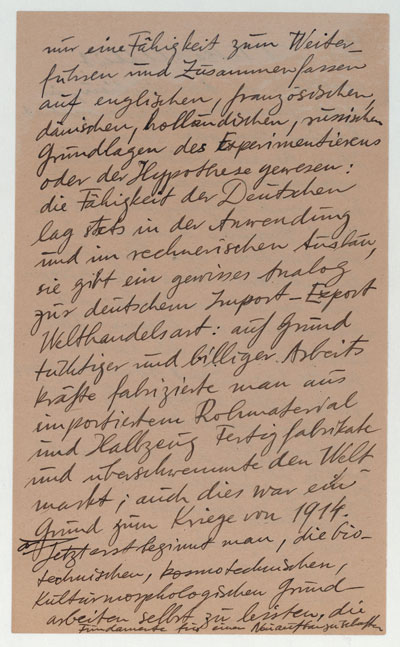 nur eine Fähigkeit zum Weiter-
führen und Zusammenfassen
auf englischen, französischen,
dänischen, holländischen, russischen
Grundlagen des Experimentierens
oder der Hypothese gewesen:
die Fähigkeit der Deutschen
lag stets in der Anwendung
und im rechnerischen Ausbau,
sie gibt ein gewisses Analog
zur deutschem Import-Export
Welthandelsart: auf Grund
tüchtiger und billiger Arbeits
kräfte fabrizierte man aus
importiertem Rohmaterial
und Halbzeug Fertigfabrikate
und überschwemmte den Welt
markt; auch dies war ein
Grund zum Kriege von 1914.
Jetzt erst beginnt man, die bio-
technischen, kosmotechnischen,
kulturmorphologischen Grund
arbeiten selbst zu leisten, die
Fundamente für einen Neuaufbau zu schaffen